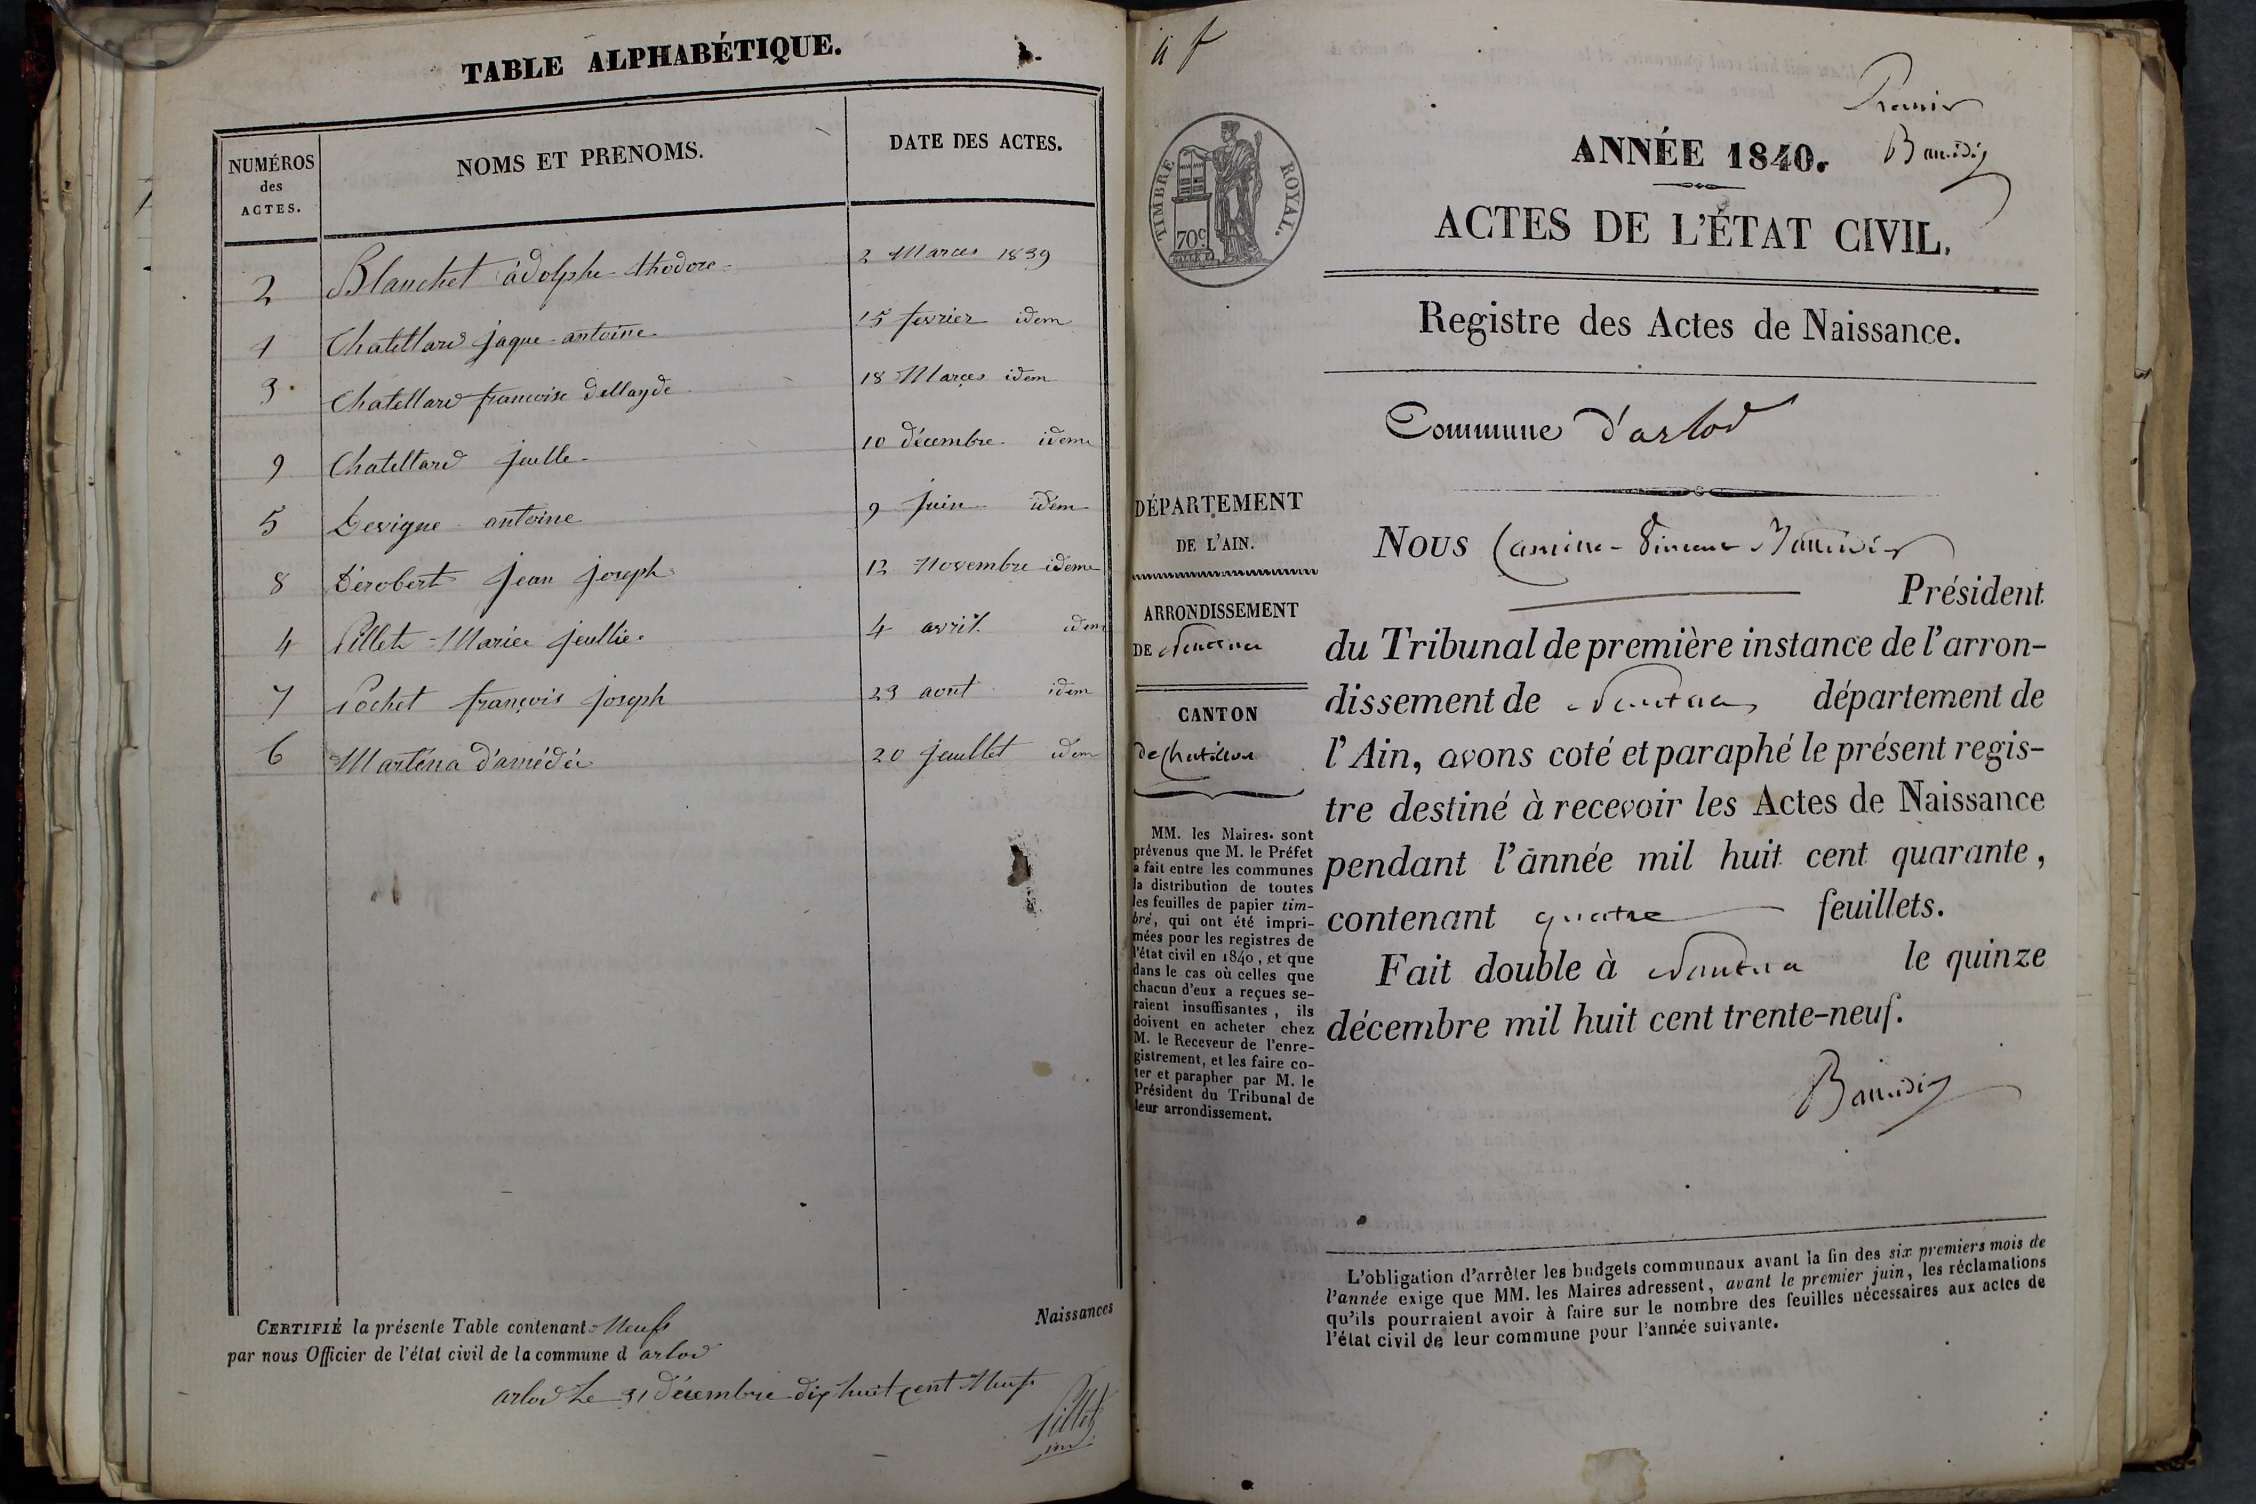 TABLE ALPHABÉTIQUE.
NUMÉROS des ACTES. NOMS ET PRENOMS. DATE DES ACTES.
2 Blanchet adolphe thodore 2 Marces 1839
1 Chatellard jaque antoine 15 fevrier idem
3 Chatellard francoise dellayde 18 Marces idem
9 Chatellard jeulle 10 décembre idem
5 Devigne antoine 9 juin idem
8 Dérobert jean joseph 12 Novembre idem
4 Pillet Mariee jeullie 4 avril idem
7 Pochet françois joseph 23 aout idem
6 Marténa d'amédée 20 jeuillet idem
CERTIFIÉ la présente Table contenant Neufs Naissances
par nous Officier de l'état civil de la commune d arlod
arlod Le 31 décembre dix huit cent Neufs
Pillet
Premier
Baudin
TIMBRE ROYAL.
70c
ANNÉE 1840.
ACTES DE L'ÉTAT CIVIL.
Registre des Actes de Naissance.
Commune d'arlod
DÉPARTEMENT
DE L'AIN.
ARRONDISSEMENT
DE Nantua
CANTON
de Chatillon
MM. les Maires. sont
prévenus que M. le Préfet
a fait entre les communes
la distribution de toutes
les feuilles de papier tim-
bré, qui ont été impri-
mées pour les registres de
l'état civil en 1840, et que
dans le cas où celles que
chacun d'eux a reçues se-
raient insuffisantes, ils
doivent en acheter chez
M. le Receveur de l'enre-
gistrement, et les faire co-
ter et parapher par M. le
Président du Tribunal de
leur arrondissement.
NOUS
Président
du Tribunal de première instance de l'arron-
dissement de Nantua département de
l'Ain, avons coté et paraphé le présent regis-
tre destiné à recevoir les Actes de Naissance
pendant l'année mil huit cent quarante,
contenant quatre feuillets.
Fait double à Nantua le quinze
décembre mil huit cent trente-neuf.
L'obligation d'arrêter les budgets communaux avant la fin des six premiers mois de
l'année exige que MM. les Maires adressent, avant le premier juin, les réclamations
qu'ils pourraient avoir à faire sur le nombre des feuilles nécessaires aux actes de
l'état civil de leur commune pour l'année suivante.